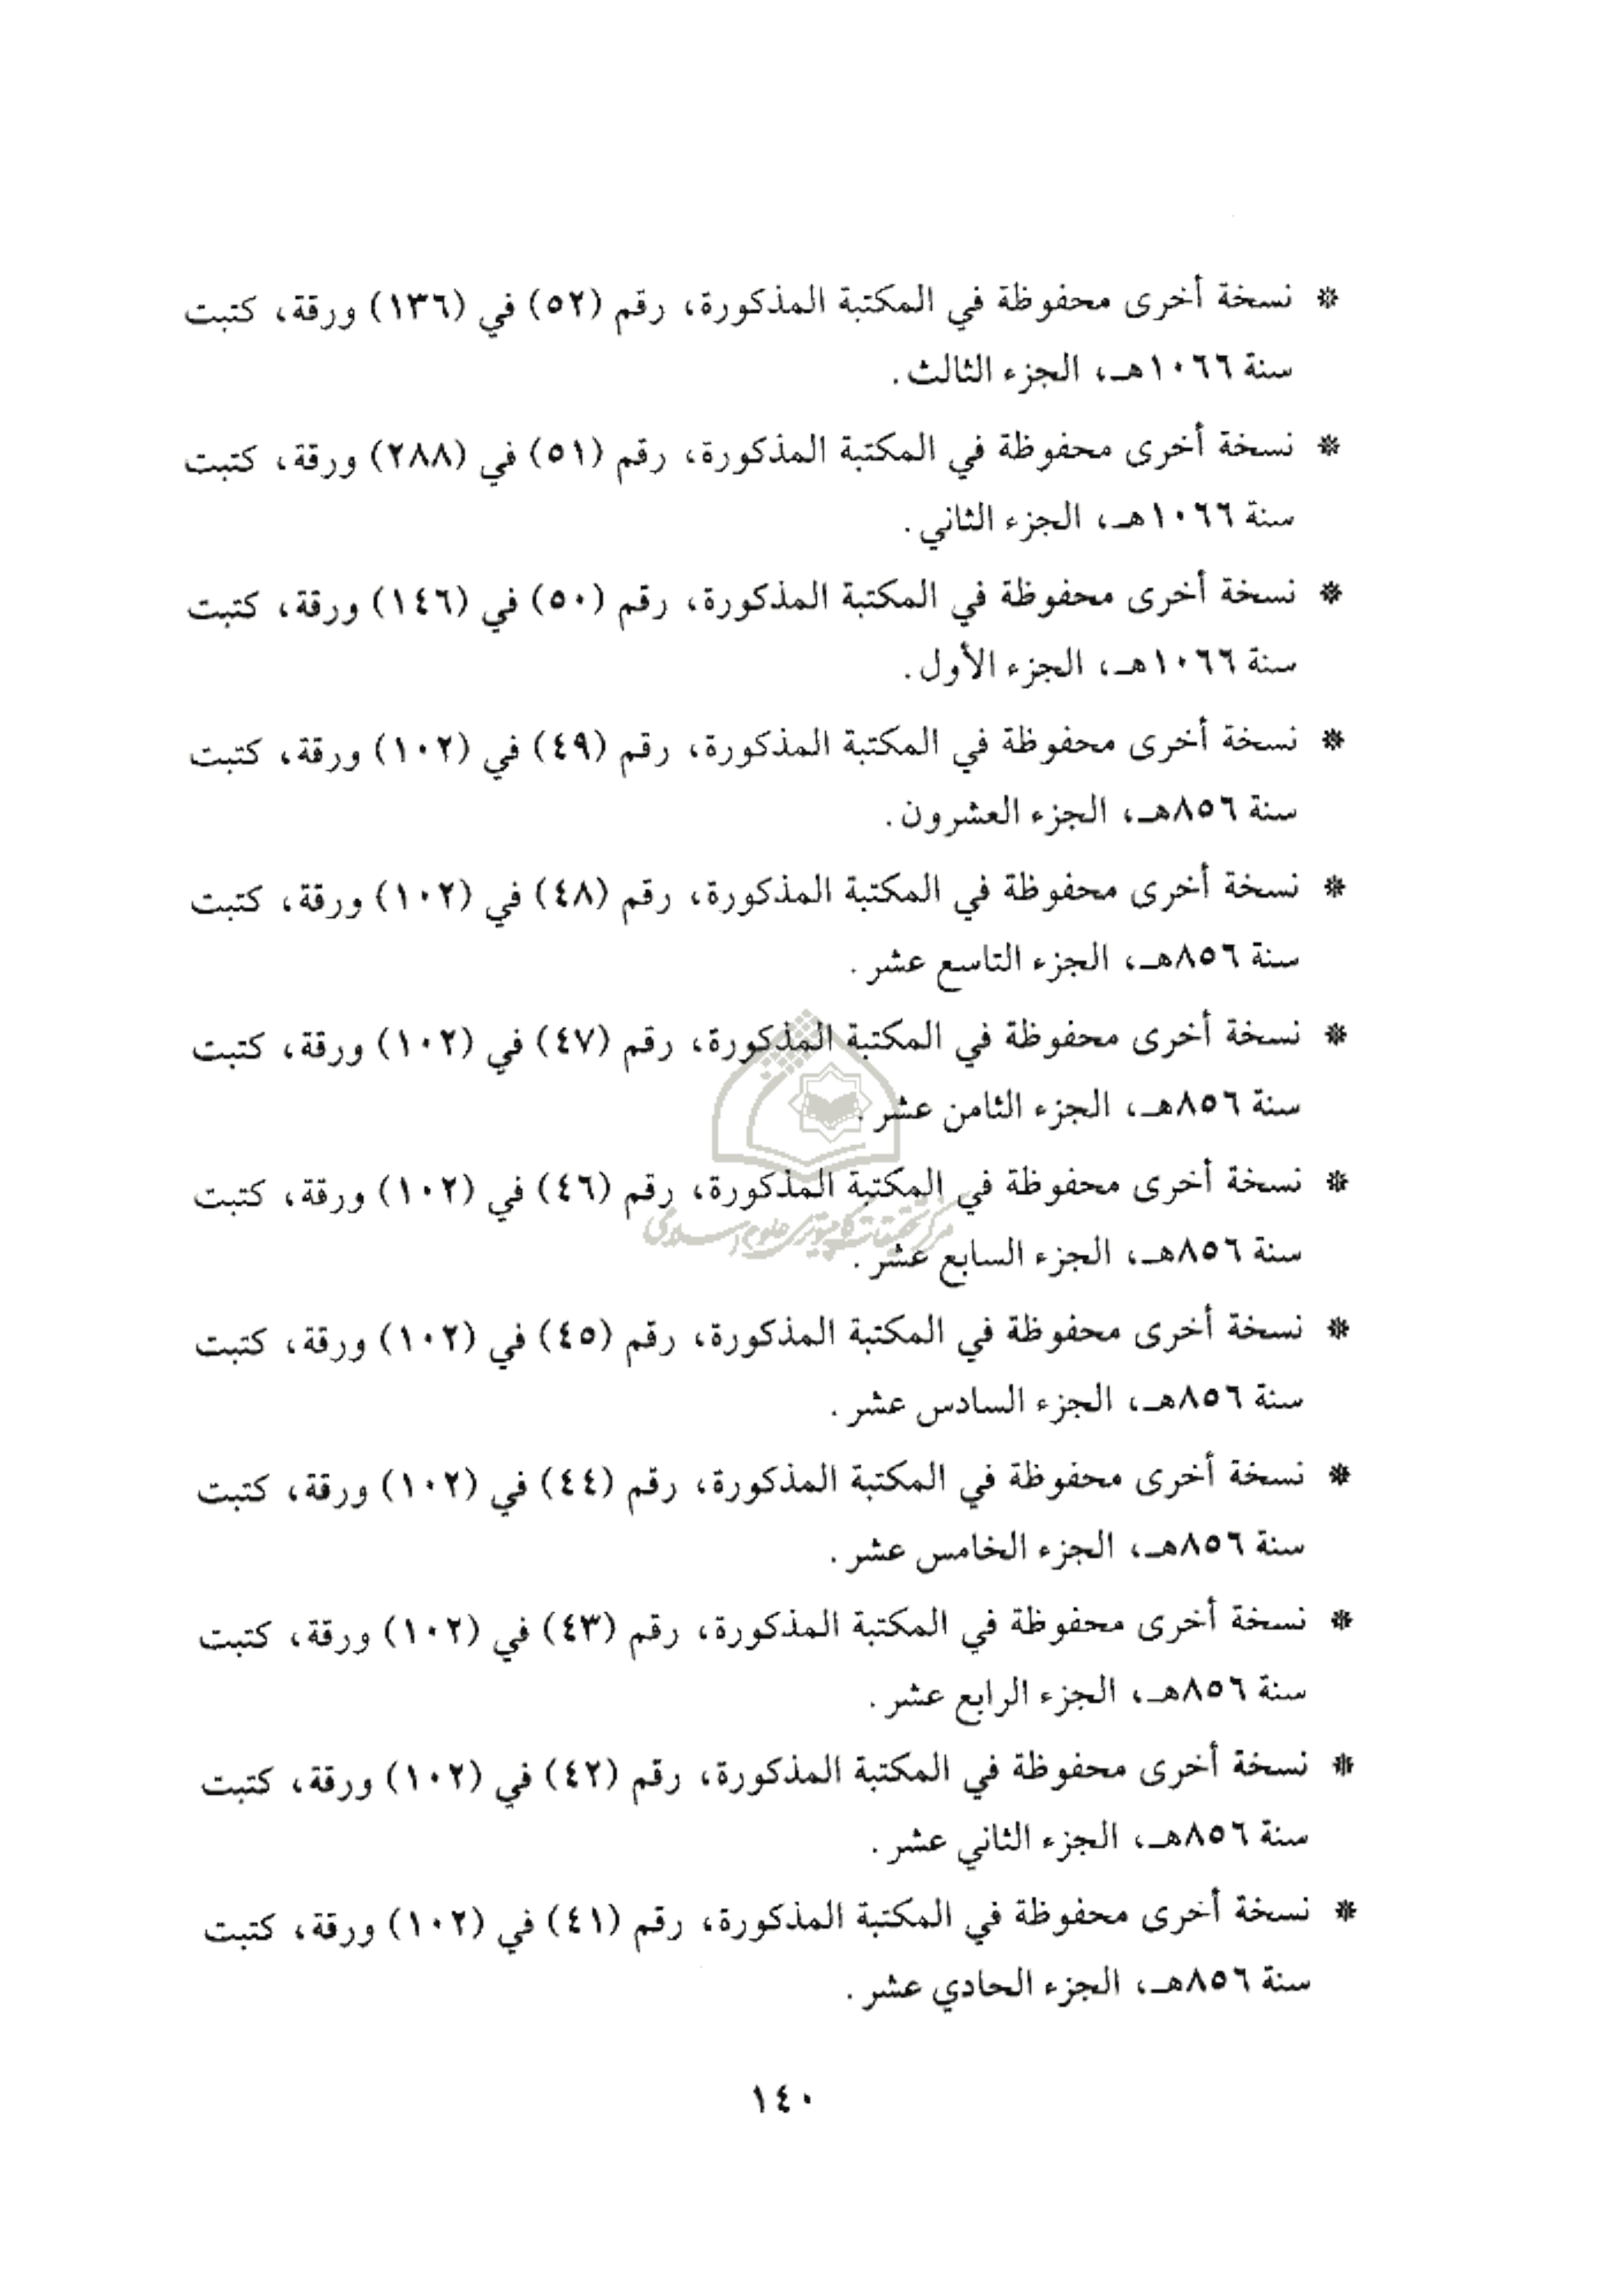 * نسخة أخرى محفوظة في المكتبة المذكورة، رقم (٥٢) في (١٣٦) ورقة، كتبت
سنة ١٠٦٦هـ، الجزء الثالث.
* نسخة أخرى محفوظة في المكتبة المذكورة، رقم (٥١) في (٢٨٨) ورقة، كتبت
سنة ١٠٦٦هـ، الجزء الثاني.
* نسخة أخرى محفوظة في المكتبة المذكورة، رقم (٥٠) في (١٤٦) ورقة، كتبت
سنة ١٠٦٦هـ، الجزء الأول.
* نسخة أخرى محفوظة في المكتبة المذكورة، رقم (٤٩) في (١٠٢) ورقة، كتبت
سنة ٨٥٦هـ، الجزء العشرون.
* نسخة أخرى محفوظة في المكتبة المذكورة، رقم (٤٨) في (١٠٢) ورقة، كتبت
سنة ٨٥٦هـ، الجزء التاسع عشر.
* نسخة أخرى محفوظة في المكتبة المذكورة، رقم (٤٧) في (١٠٢) ورقة، كتبت
سنة ٨٥٦هـ، الجزء الثامن عشر.
* نسخة أخرى محفوظة في المكتبة المذكورة، رقم (٤٦) في (١٠٢) ورقة، كتبت
مركز تحقيقات كامپيوتري علوم اسلامي
سنة ٨٥٦هـ، الجزء السابع عشر.
* نسخة أخرى محفوظة في المكتبة المذكورة، رقم (٤٥) في (١٠٢) ورقة، كتبت
سنة ٨٥٦هـ، الجزء السادس عشر.
* نسخة أخرى محفوظة في المكتبة المذكورة، رقم (٤٤) في (١٠٢) ورقة، كتبت
سنة ٨٥٦هـ، الجزء الخامس عشر.
* نسخة أخرى محفوظة في المكتبة المذكورة، رقم (٤٣) في (١٠٢) ورقة، كتبت
سنة ٨٥٦هـ، الجزء الرابع عشر.
* نسخة أخرى محفوظة في المكتبة المذكورة، رقم (٤٢) في (١٠٢) ورقة، كتبت
سنة ٨٥٦هـ، الجزء الثاني عشر.
* نسخة أخرى محفوظة في المكتبة المذكورة، رقم (٤١) في (١٠٢) ورقة، كتبت
سنة ٨٥٦هـ، الجزء الحادي عشر.
١٤٠